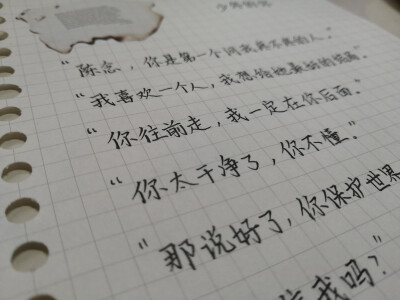 少年的你
"陈念，你是第一个问我疼不疼的人。"
"我喜欢一个人，我想给她最好的结局。"
"你往前走，我一定在你后面。"
"你太干净了，你不懂。"
"那说好了，你保护世界
我吗？"